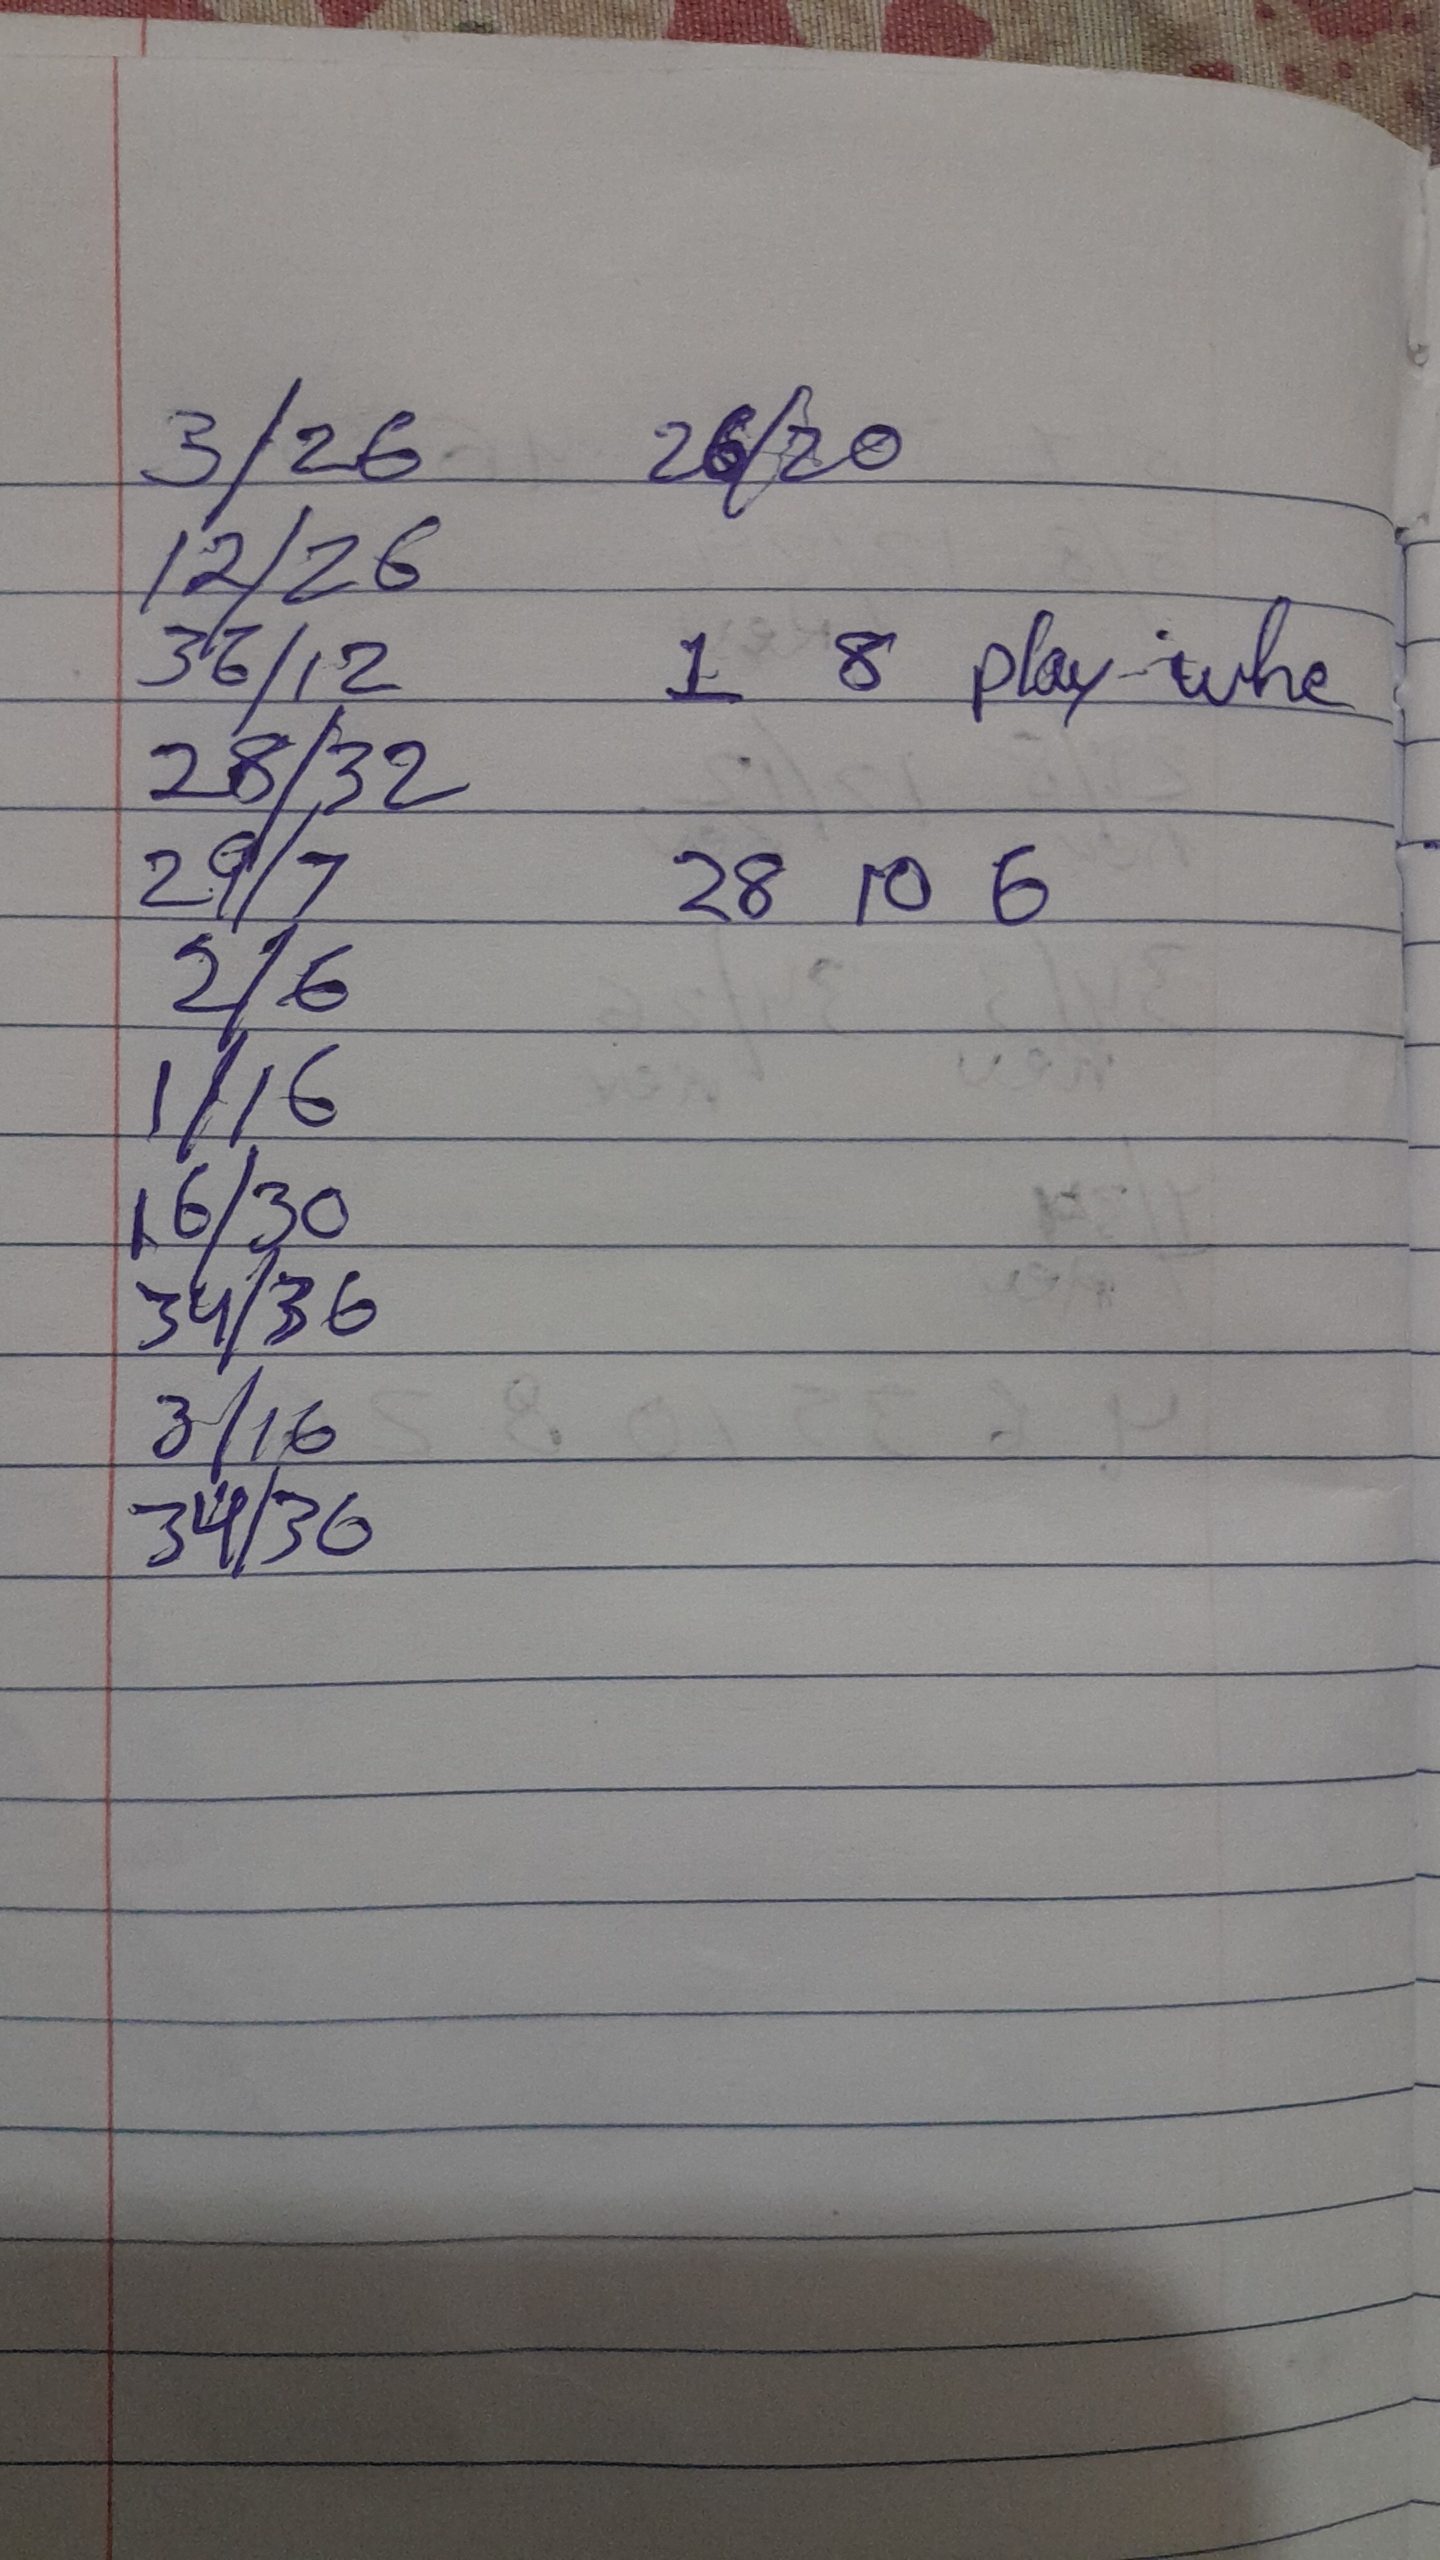 3/26 26/20
12/26
36/12 1 8 play-whe
28/32
29/7 28 10 6
2/6
1/16
16/30
34/36
3/16
34/36